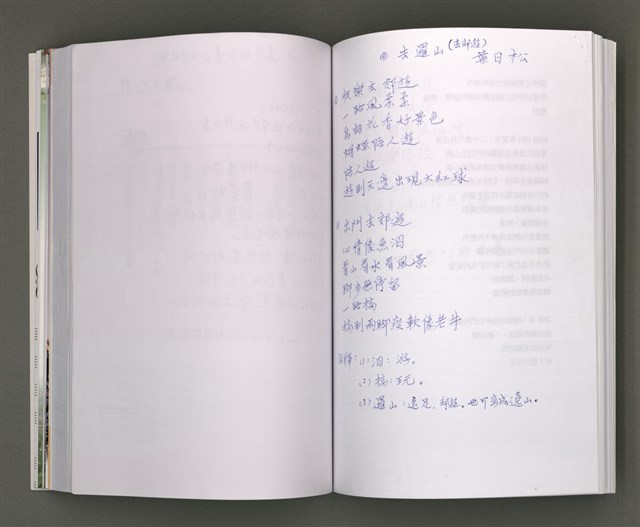 去邏山(去郊遊)
葉日松
快樂去郊遊
一路風柔柔
鳥語花香好景色
蝴蝶陪人遊
陪人遊
遊到天邊出現大紅球
出門去郊遊
心情像魚泅
看山看水看風景
脚步無停留
一路搞
搞到兩脚痠軟像老牛
註釋:(1)泅:游。
(2)搞:玩。
(3)邏山:遠足、郊遊。也可寫成邏山。